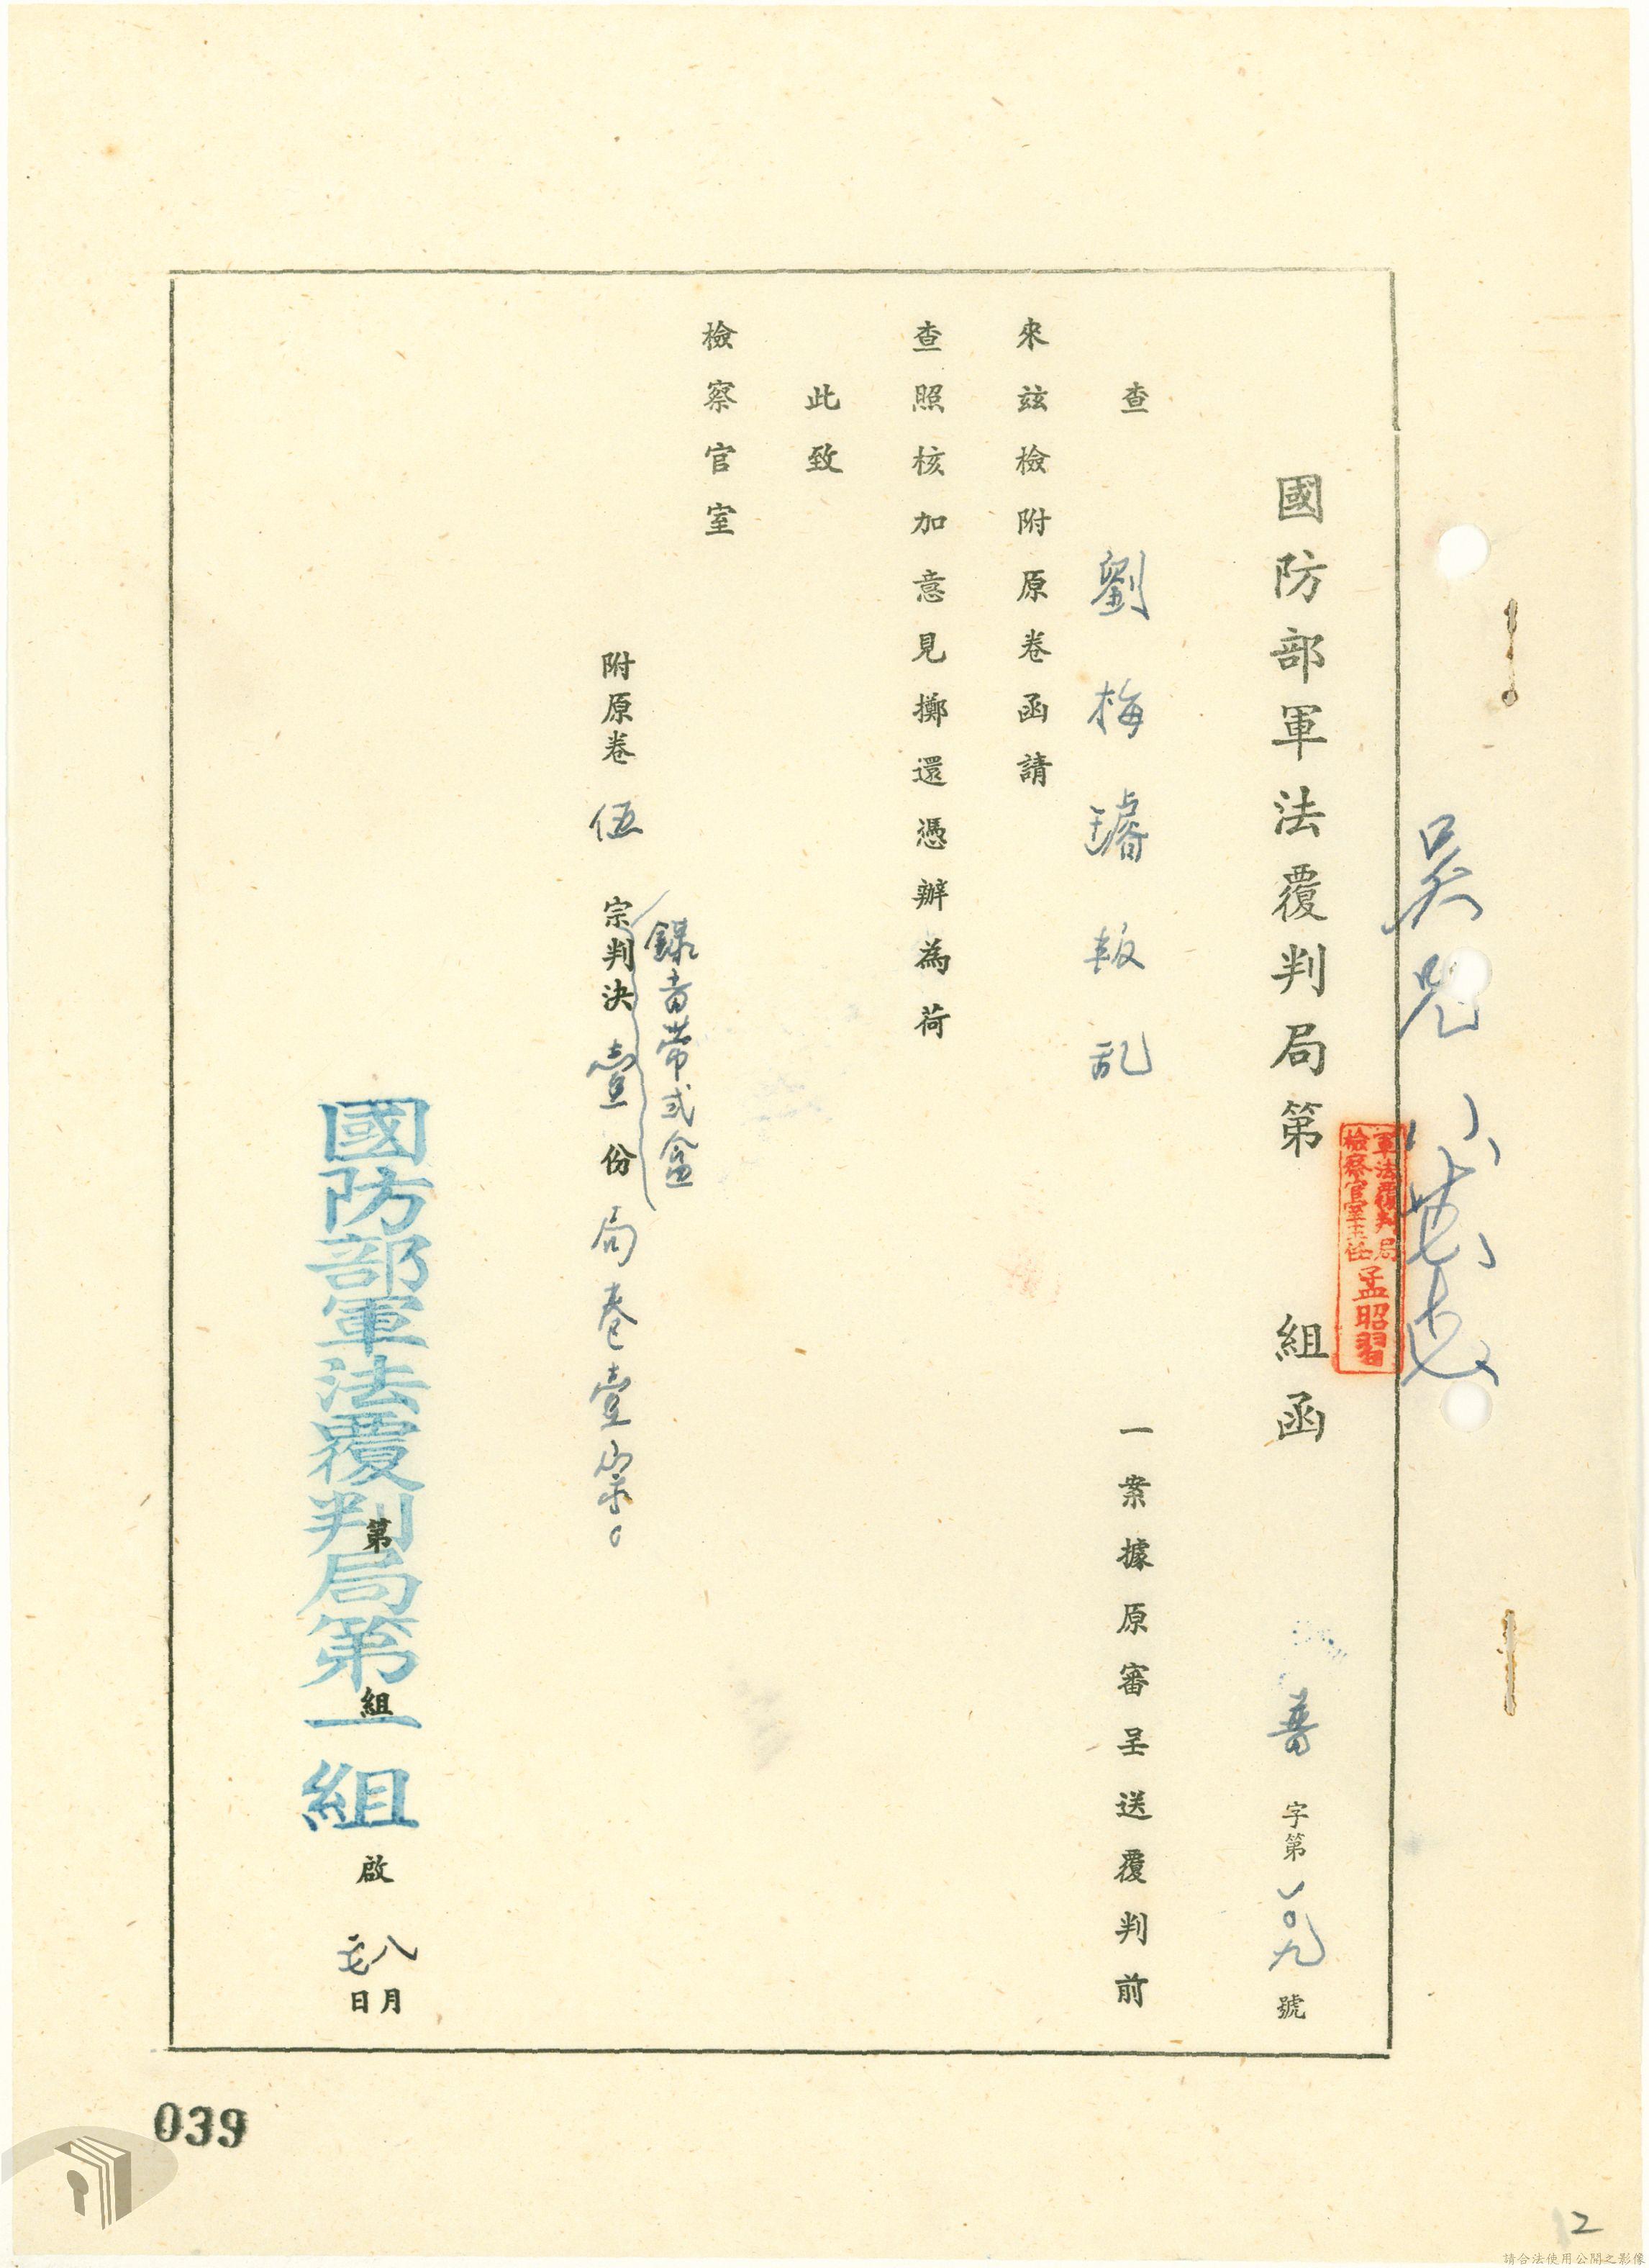 國防部軍法覆判局第　組函　普字第一〇九號
軍法覆判局
檢察官室主任　孟昭習
查　劉梅璿叛乱　一案據原審呈送覆判前
來茲檢附原卷函請
查照核加意見擲還憑辦為荷
此致
檢察官室
錄音帶弍盒
附原卷伍宗判決壹份局卷壹宗。
國防部軍法覆判局第一組
第　組　啟　八月　日
039
2
請合法使用公開之影像